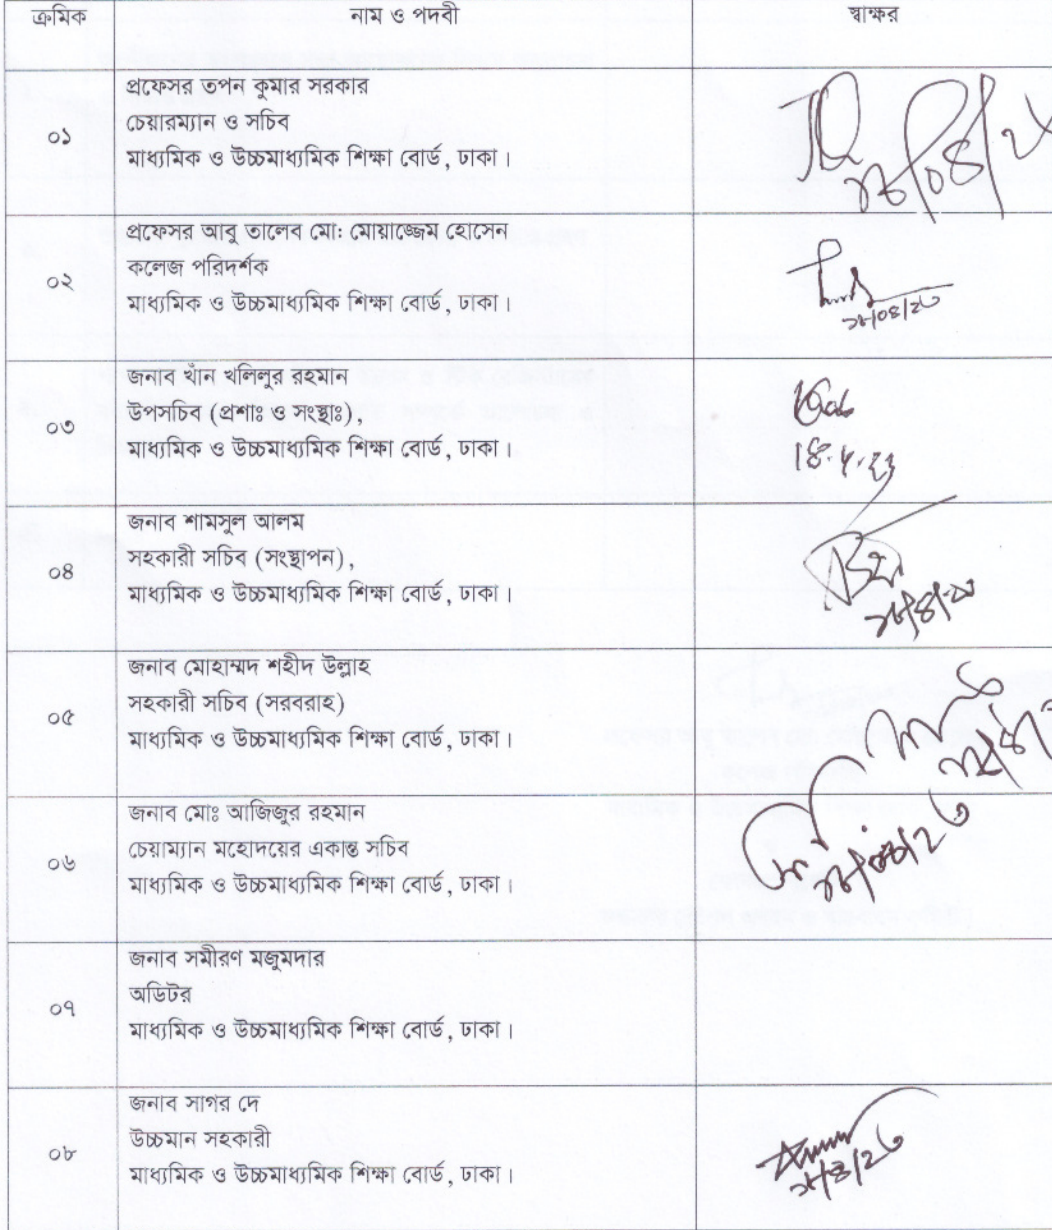 ক্রমিক নাম ও পদবী স্বাক্ষর
প্রফেসর তপন কুমার সরকার
০১ চেয়ারম্যান ও সচিব
মাধ্যমিক ও উচ্চমাধ্যমিক শিক্ষা বোর্ড, ঢাকা।
প্রফেসর আবু তালেব মো: মোয়াজ্জেম হোসেন
০২ কলেজ পরিদর্শক
মাধ্যমিক ও উচ্চমাধ্যমিক শিক্ষা বোর্ড, ঢাকা।
১৮/০৪/২৩
জনাব খাঁন খলিলুর রহমান
০৩ উপসচিব (প্রশাঃ ও সংস্থাঃ),
মাধ্যমিক ও উচ্চমাধ্যমিক শিক্ষা বোর্ড, ঢাকা।
18.4.23
জনাব শামসুল আলম
০৪ সহকারী সচিব (সংস্থাপন),
মাধ্যমিক ও উচ্চমাধ্যমিক শিক্ষা বোর্ড, ঢাকা।
জনাব মোহাম্মদ শহীদ উল্লাহ
০৫ সহকারী সচিব (সরবরাহ)
মাধ্যমিক ও উচ্চমাধ্যমিক শিক্ষা বোর্ড, ঢাকা।
জনাব মোঃ আজিজুর রহমান
০৬ চেয়াম্যান মহোদয়ের একান্ত সচিব
মাধ্যমিক ও উচ্চমাধ্যমিক শিক্ষা বোর্ড, ঢাকা।
জনাব সমীরণ মজুমদার
০৭ অডিটর
মাধ্যমিক ও উচ্চমাধ্যমিক শিক্ষা বোর্ড, ঢাকা।
জনাব সাগর দে
০৮ উচ্চমান সহকারী
মাধ্যমিক ও উচ্চমাধ্যমিক শিক্ষা বোর্ড, ঢাকা।
১৮/৪/২৩